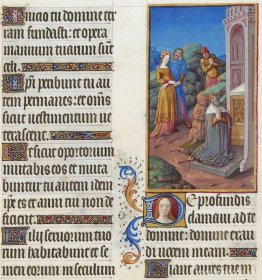 Inicio tu domine ter
ram fundasti: et opera
manuum tuarum sunt
celi.
Ipi peribunt tu au
tem permanes: et omēs
sicut vestimentum ve
terascent.
Et sicut oportorium
mutabis eos et muta
buntur tu autem idem
ipse es et anni tui non de
ficient.
Filij seruorum tuo
rum habitabunt et se
men eorum in seculum
De profundis
clamaui ad te
domine: domine exau
di uocem meam.
Fiant aures tue in